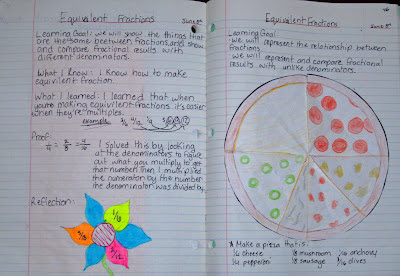 Equivalent Fractions
June 8th
Learning Goal: we will show the things that
are the same between fractions and show
and compare fractional results with
different denominators.
What I Know: I Know how to make
equivalent fraction
What I learned: I learned that when
you're making equivalent fractions it's easier
when they're multiples.
example
Proof:
I solved this by looking
at the denominators to figure
out what you multiply to get
that number. Then I multiplied
the numerator by the number
the denominator was divided by.
Reflection:
Equivalent Fractions
June 8th
Learning Goal:
we will represent the relationship between
fractions.
we will represent and compare fractional
results with unlike denominators.
* Make a pizza that is:
cheese 1/8 mushroom 1/16 anchovy
pepperoni 1/8 sausage olives